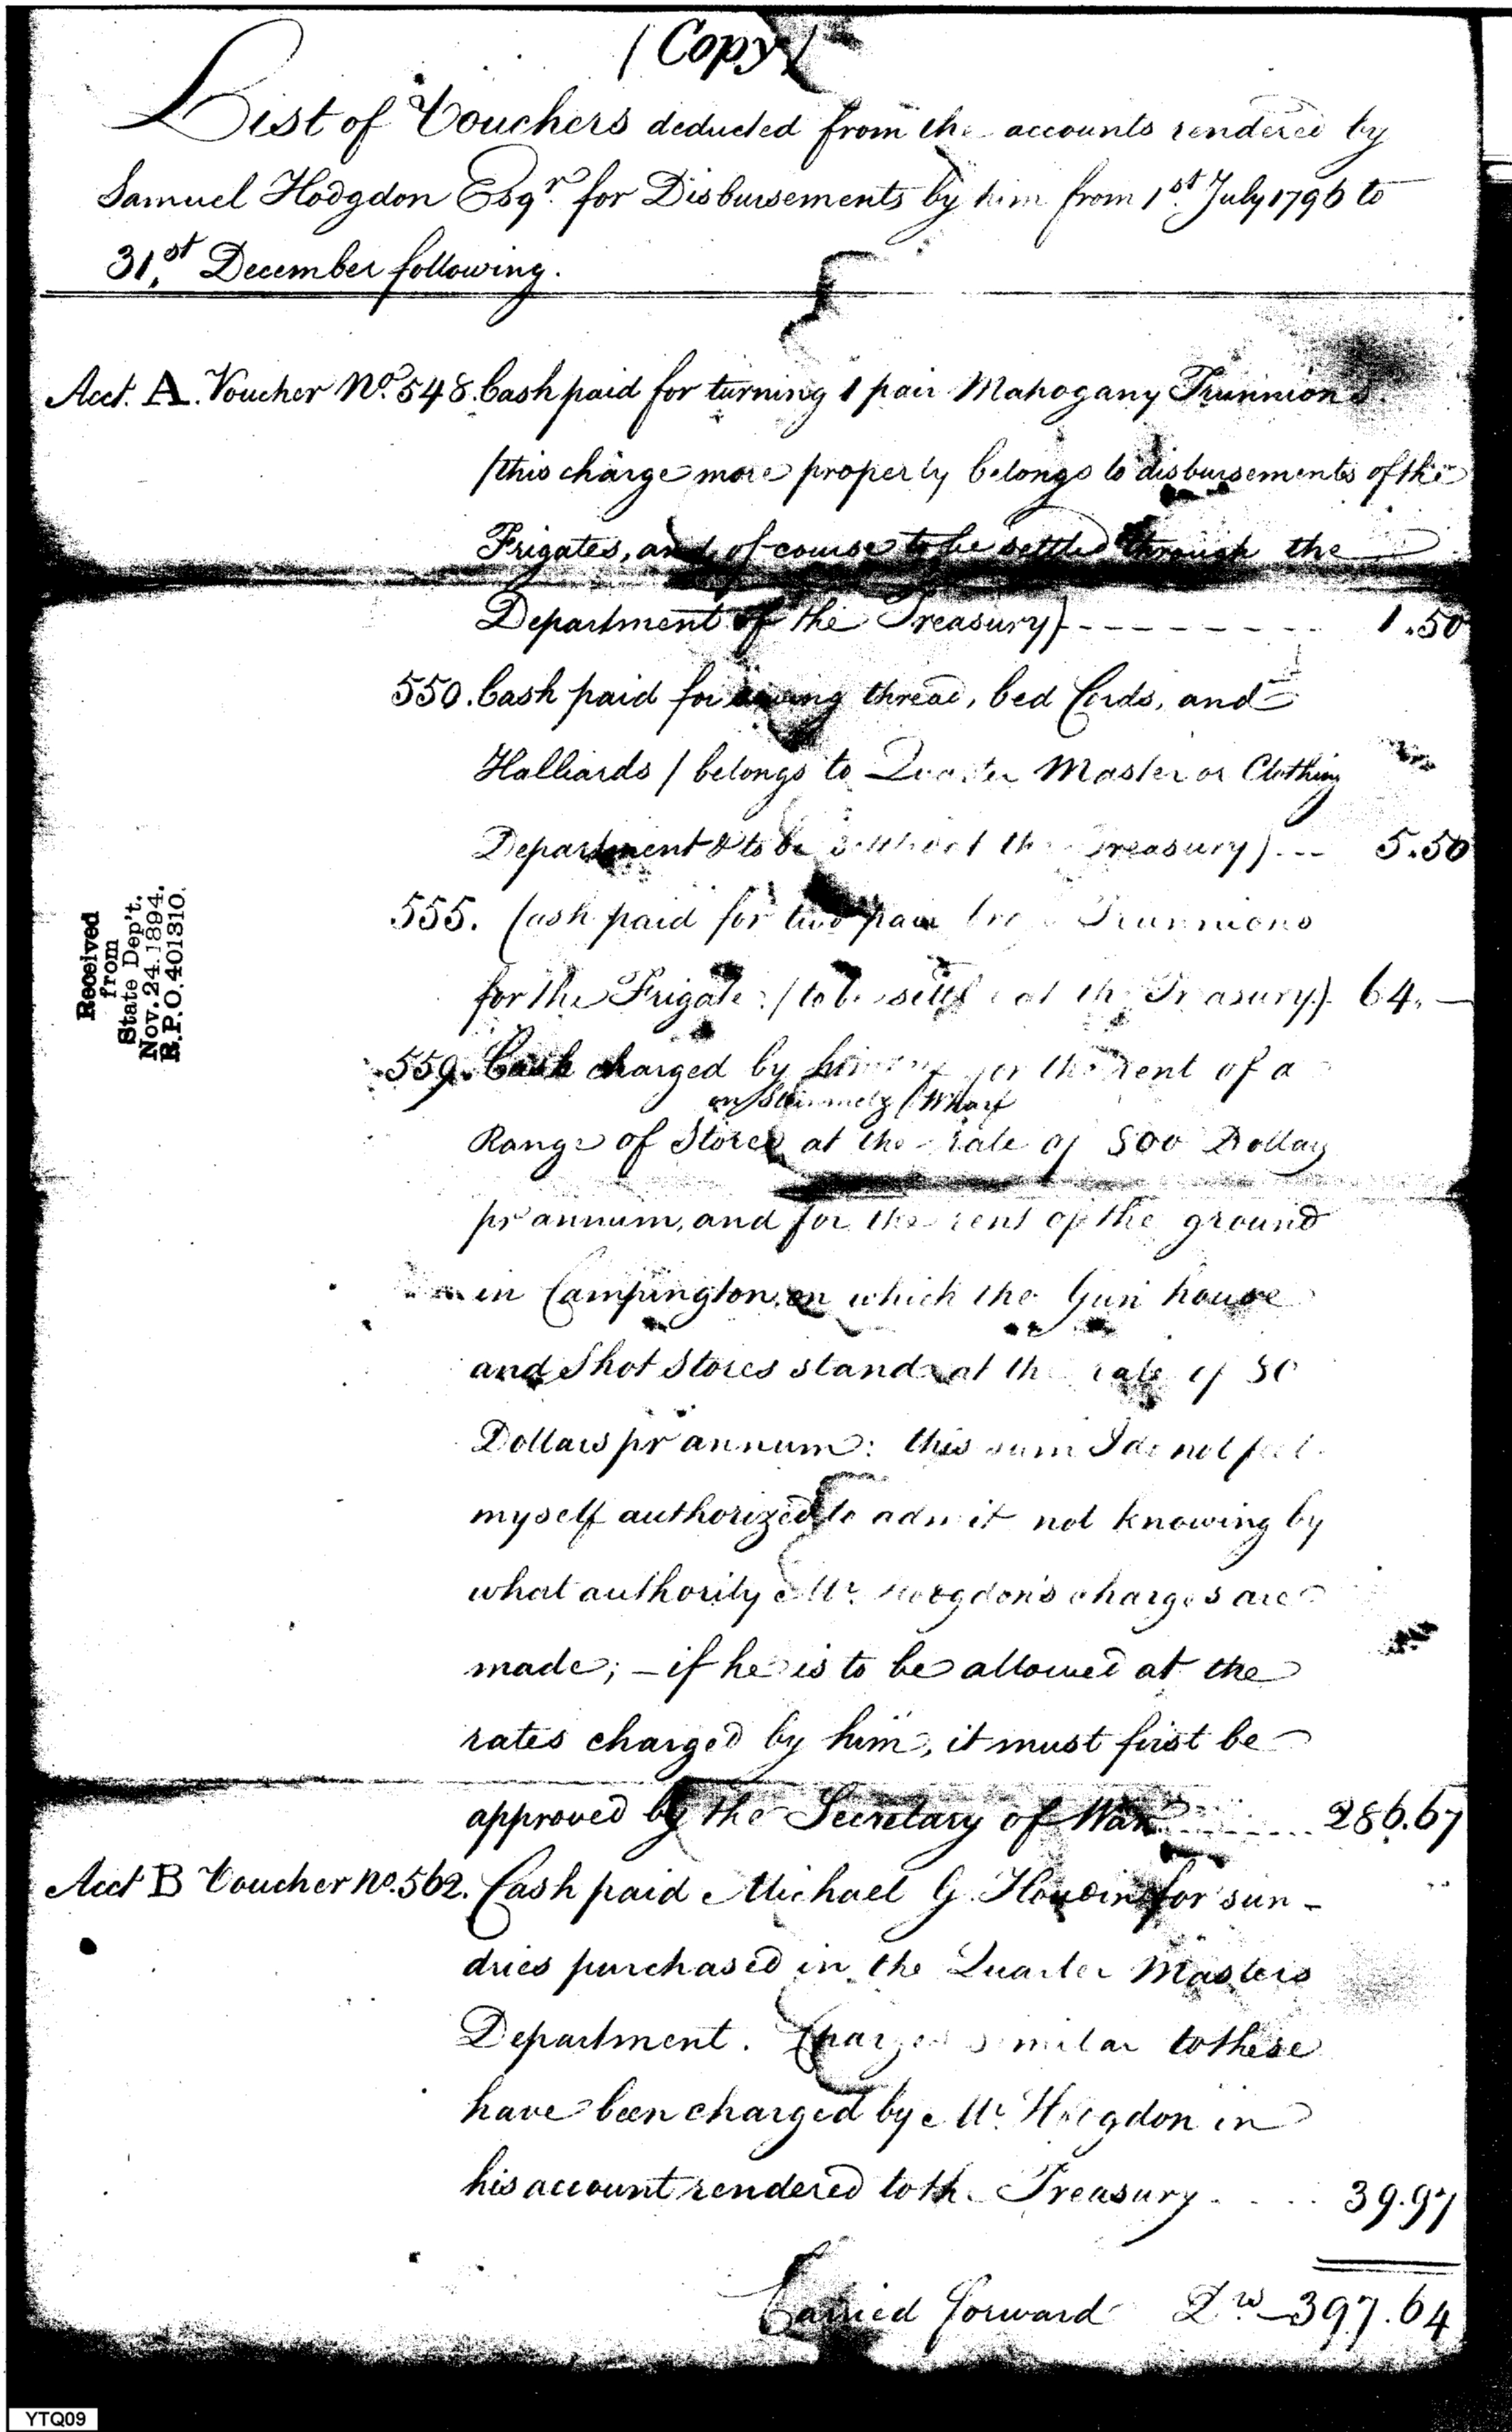 (Copy)
List of Vouchers deducted from the accounts rendered by
Samuel Hodgdon Esqr. for Disbursements by him from 1st. July 1796 to
31,st December following.
Acct. A. Voucher No. 548. Cash paid for turning 1 pair Mahogany Trunnions
/this charge more properly belongs to disbursements of the
Frigates, and of course to be settled through the
Department of the Treasury) 1.50
550. Cash paid for sewing thread, bed Cords, and
Halliards / belongs to Quarter Master or Clothing
Department & to be settled at the Treasury) 5.50
555. Cash paid for two pair Trunnions
for the Frigate /to be settled at the Treasury) 64,—
559. Cash charged by him for the rent of a
on Steinmetz Wharf
Range of Stores at the rate of 500 Dollars
pr annum, and for the rent of the ground
in Campington, on which the Gun house
and Shot Stores stand at the rate of
Dollars pr annum: this sum I do not feel
myself authorized to admit not knowing by
what authority Mr. Hodgdon's charges are
made; — if he is to be allowed at the
rates charged by him, it must first be
approved by the Secretary of War 286.67
Acct B Voucher No. 562. Cash paid Michael G. Houdin for sun-
dries purchased in the Quarter Masters
Department. Charges similar to these
have been charged by Mr. Hodgdon in
his account rendered to the Treasury 39.97
Carried forward Drs 397.64
Received
from
State Dep't.
Nov. 24. 1894.
R.P.O. 401310.
YTQ09